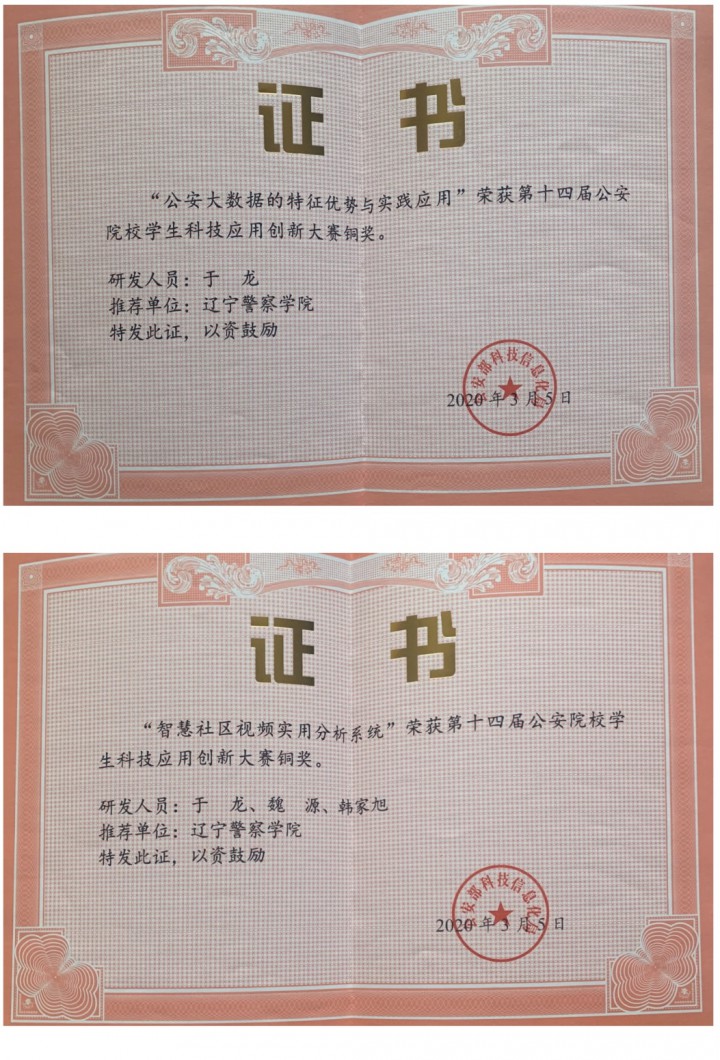 证 书
“公安大数据的特征优势与实践应用”荣获第十四届公安
院校学生科技应用创新大赛铜奖。
研发人员：于 龙
推荐单位：辽宁警察学院
特发此证，以资鼓励
公安部科技信息化局
2020年3月5日
证 书
“智慧社区视频实用分析系统”荣获第十四届公安院校学
生科技应用创新大赛铜奖。
研发人员：于 龙、魏 源、韩家旭
推荐单位：辽宁警察学院
特发此证，以资鼓励
公安部科技信息化局
2020年3月5日